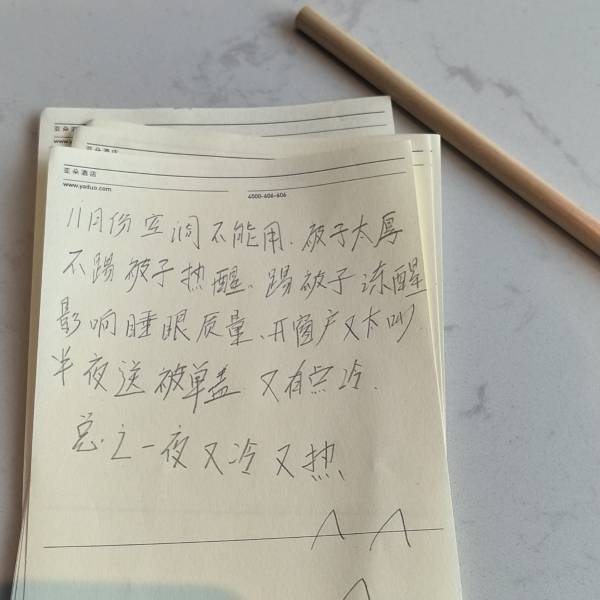 亚朵
亚朵酒店
亚朵酒店
www.yaduo.com
4000-606-606
11月份空调不能用、被子太厚
不踢被子热醒、踢被子冻醒
影响睡眠质量、开窗户又太吵
半夜送被单盖 又有点冷、
总之一夜又冷又热